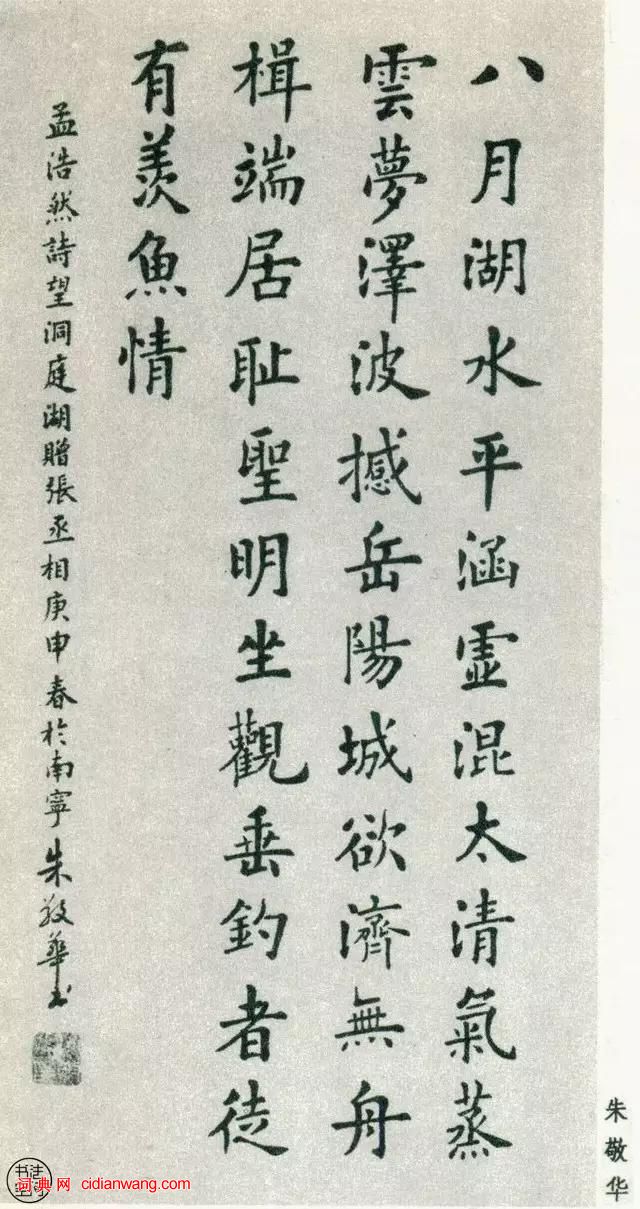 八月湖水平涵虛混太清氣蒸
雲夢澤波撼岳陽城欲濟無舟
楫端居耻聖明坐觀垂釣者徒
有羨魚情
孟浩然詩望洞庭湖贈張丞相庚申春於南寧朱敬華書
朱敬华
词典网 cidianwang.com